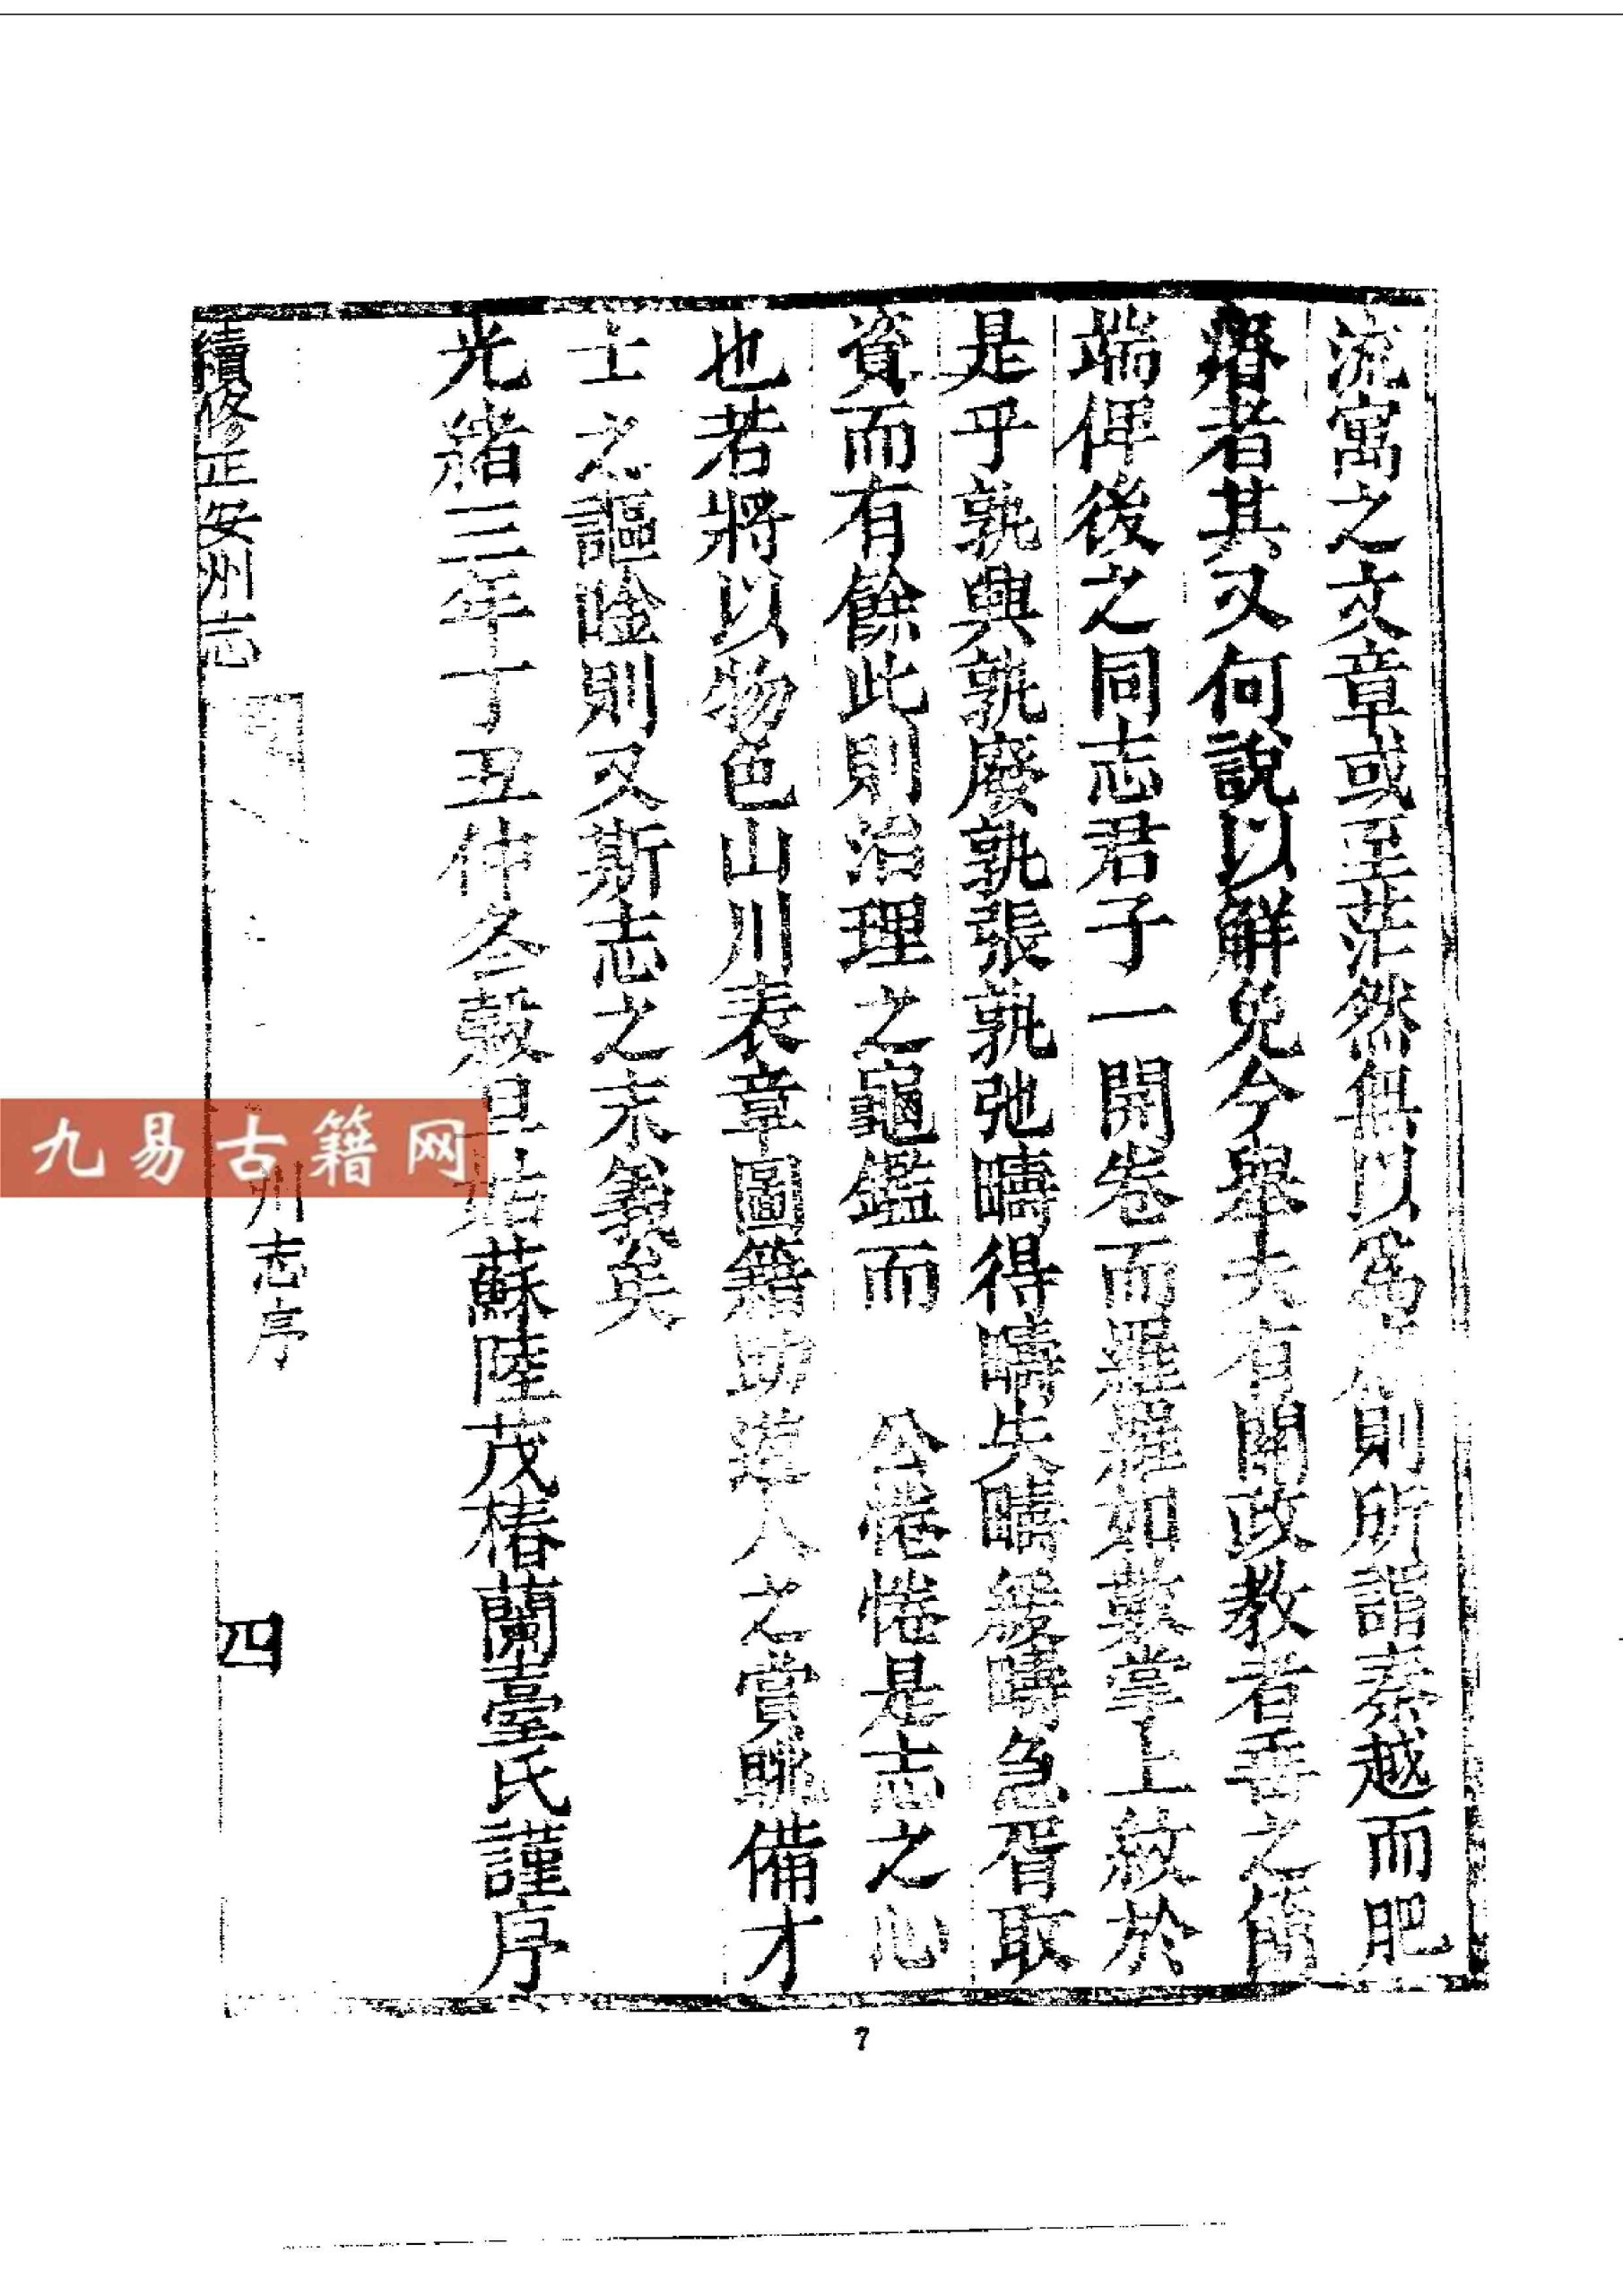 流寓之文章或至茫然無以爲則所謂秦越而肥
瘠者其又何說以解免今舉夫有關政教者垂之簡
端俾後之同志君子一開卷而羅羅如數掌上紋於
是乎孰興孰廢孰張孰弛疇得疇失疇緩疇急胥取
資而有餘此則治理之龜鑑而 公惓惓是志之心
也若將以物色山川表章圖籍助遊人之賞眺備才
士之謳唫則又斯志之末義矣
光緒三年丁丑仲冬穀旦姑蘇陸茂椿蘭臺氏謹序
續修正安州志
州志序
四
九易古籍网
7